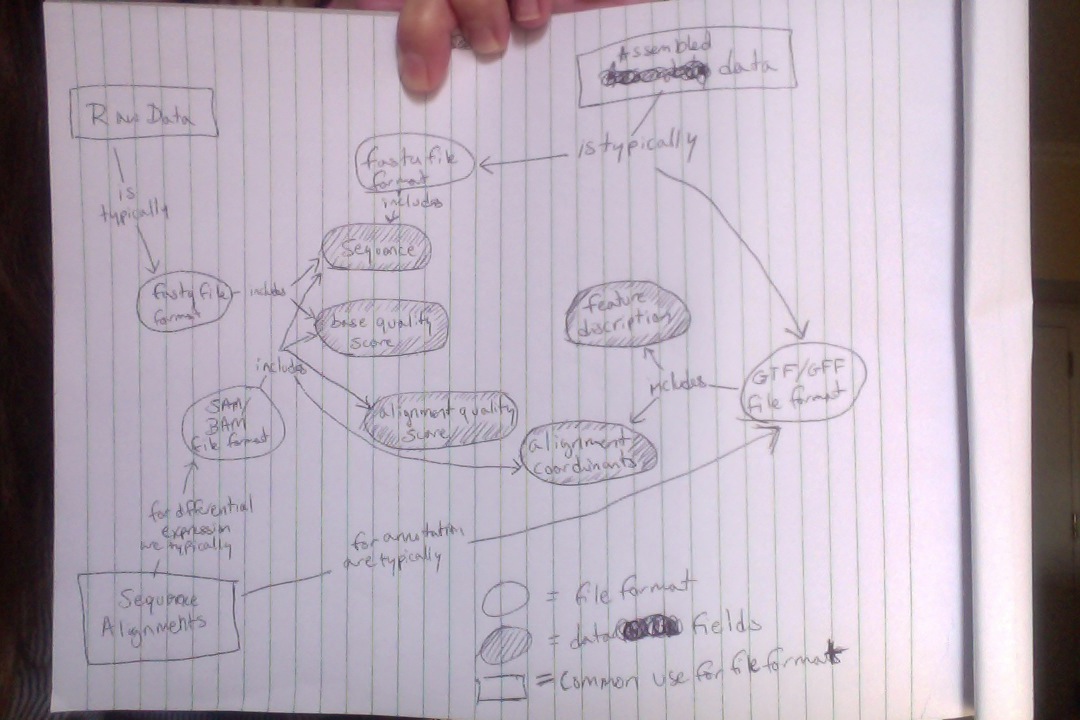 Assembled
data
Raw Data
is typically
fasta file
format
includes
is
typically
Sequence
fastq file
format
includes
base quality
score
feature
discription
includes
GTF/GFF
file format
includes
SAM/
BAM
file format
alignment quality
score
alignment
coordinants
for differential
expression
are typically
for annotation
are typically
Sequence
Alignments
= file format
= data fields
= Common use for file format